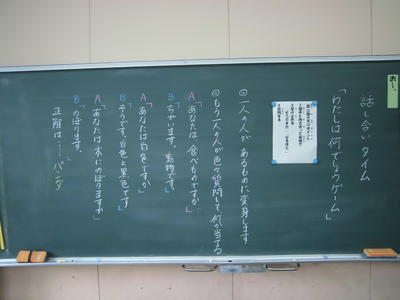 話し合いタイム
「わたしは何でしょうゲーム」
◎一人の人が、あるものに変身します
◎もう一人の人が色々質問して、何か当てる
A「あなたは、食べものですか」
B「ちがいます。動物です。」
A「あなたは白色ですか」
B「そうです。白色と黒色です」
A「あなたは木にのぼりますか」
B「のぼります。」
正解は・・・パンダ